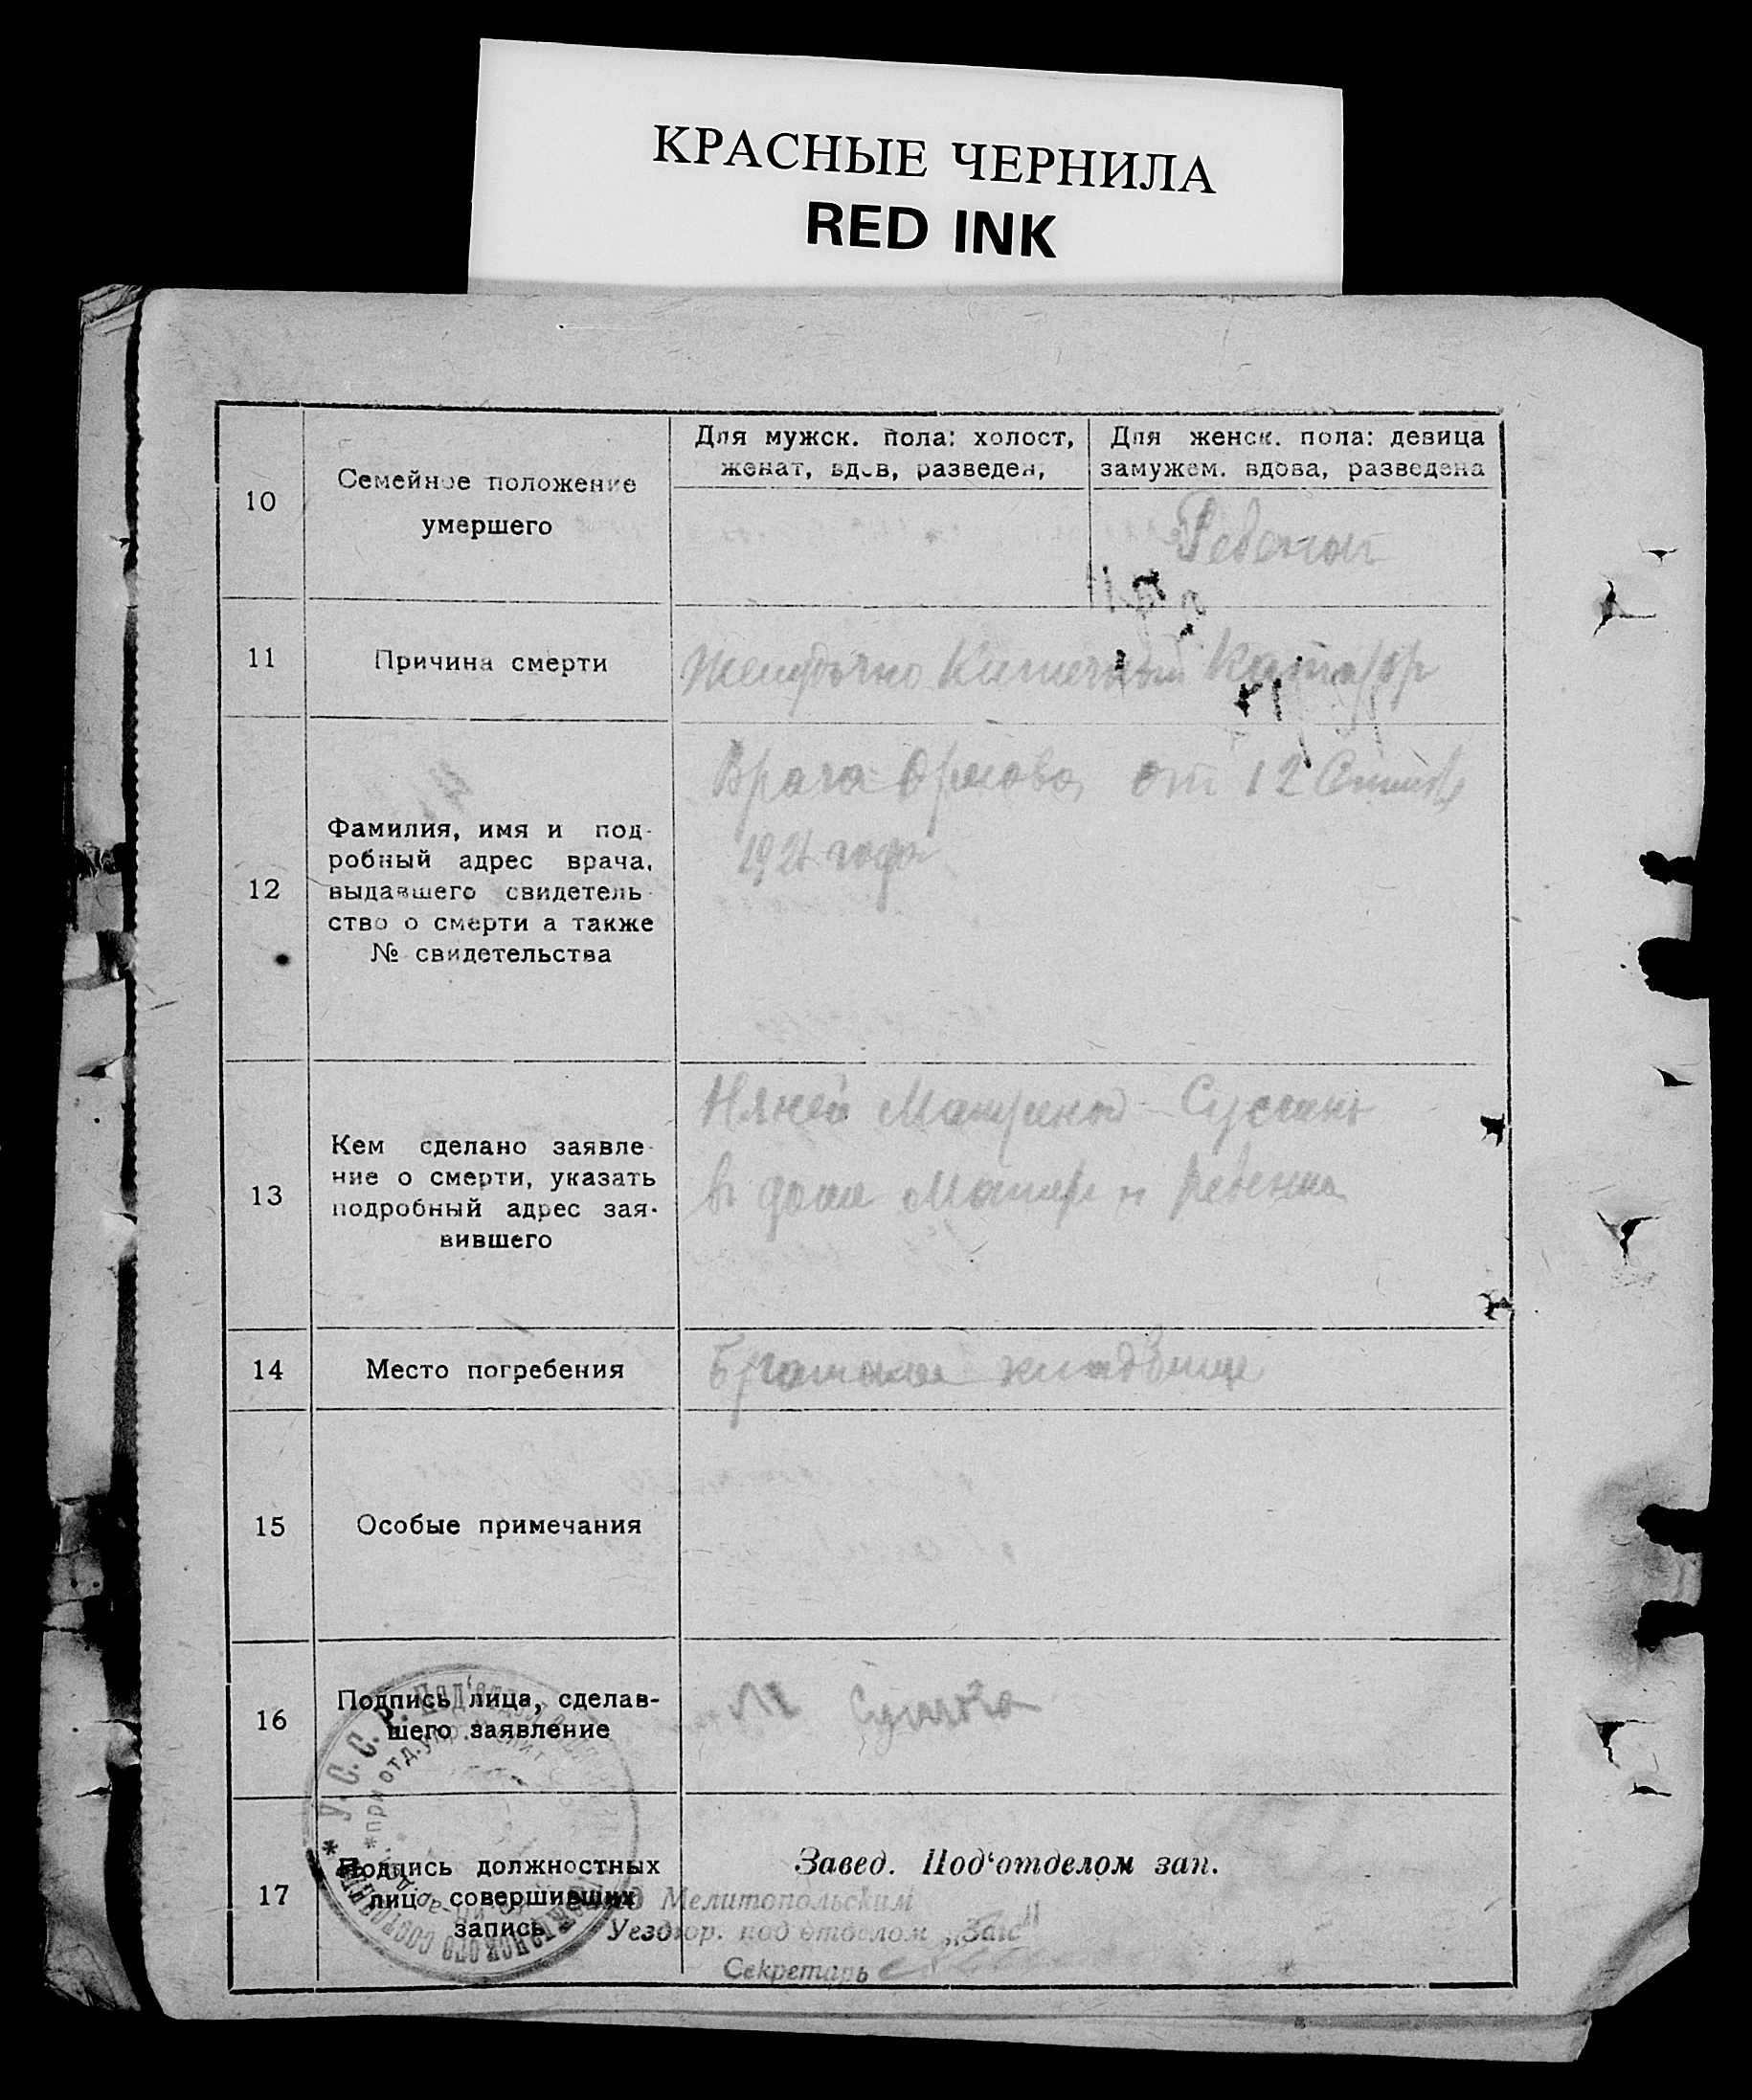 КРАСНЫЕ ЧЕРНИЛА
RED INK
10
Семейное положение
умершего
Для мужск. пола: холост,
женат, вдов, разведен,
Для женск. пола: девица
замужем. вдова, разведена
Ребенок
11
Причина смерти
Желудочно Кишечный Катарр
12
Фамилия, имя и под-
робный адрес врача,
выдавшего свидетель-
ство о смерти а также
№ свидетельства
Врача от 12
1921 года
13
Кем сделано заявле-
ние о смерти, указать
подробный адрес зая-
вившего
Няней
в доме Матери и ребенка
14
Место погребения
Братское кладбище
15
Особые примечания
16
Подпись лица, сделав-
шего заявление
М
17
Подпись должностных
лиц совершивших
запись
Завед. Под‘отделом зап.
Мелитопольским
Уездгор. под отделом „Загс"
Секретарь
У. С. С. Р. Под‘отдел